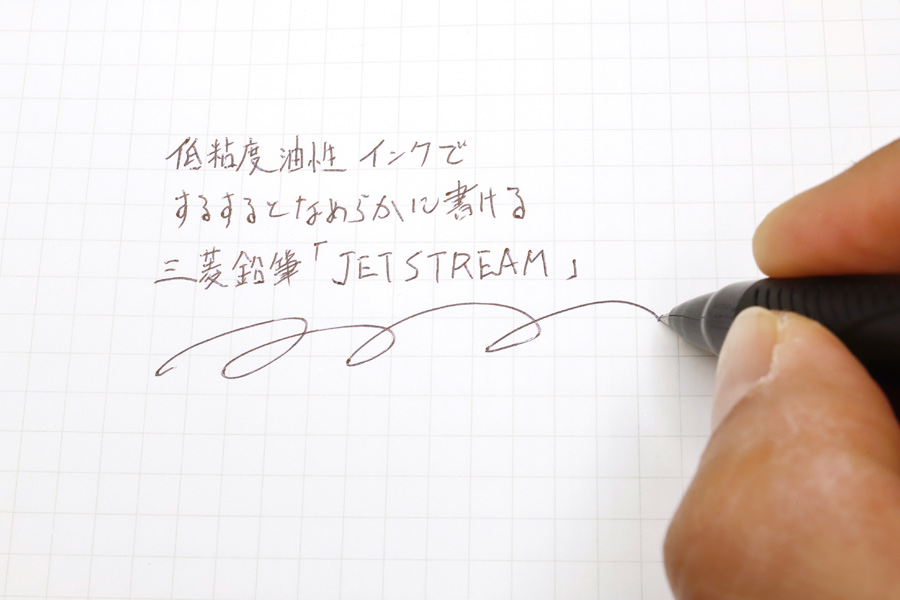 低粘度油性インクで
するするとなめらかに書ける
三菱鉛筆「JETSTREAM」